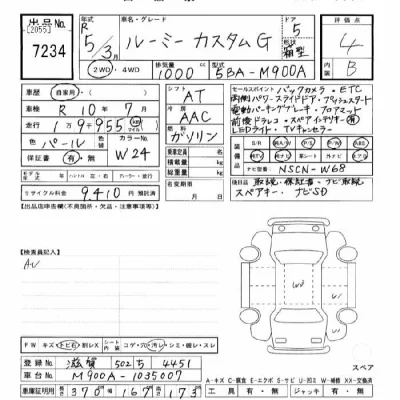 出品No.
[2055]
7234
年式
R 5/3月
車名・グレード
ルーミー カスタムG
ドア 5
形状 箱型
評価点
4
内装 B
2WD・4WD
排気量 1000cc
型式 5BA-M900A
車歴 自家用
車検 R 10年 7月
走行 19,955
色 パール
カラーNo. W24
保証書 有・無
シフト AT
冷房 AAC
燃料 ガソリン
乗車定員 名
積載量 kg
総重量 kg
有効期限 年 月
リサイクル料金 9,410円 預託済
セールスポイント バックカメラ・ETC
両側パワースライドドア・プッシュスタート
電動パーキングブレーキ・フロアマット
前後ドラレコ・スペアインテリキー有
LEDライト・TVキャンセラー
装備品
ナビ型番 NSCN-W68
取説・保証書・ナビ取説
スペアキー・ナビSD
[出品店申告欄(不具合箇所・欠品・注意事項等)]
[検査員記入]
AU
FW キズ・トビ石・割レX
シート内装 コゲ・穴・汚レ・シミ・破レ・スレ
登録No. 滋賀 502 ち 4451
車台No. M900A-1035007
車庫証明用 370 167 173
スペア
A-キズ C-腐食 E-エクボ S-サビ U-凹ミ W-補修 XX-交換済
工具 有・無 ジャッキ 有・無